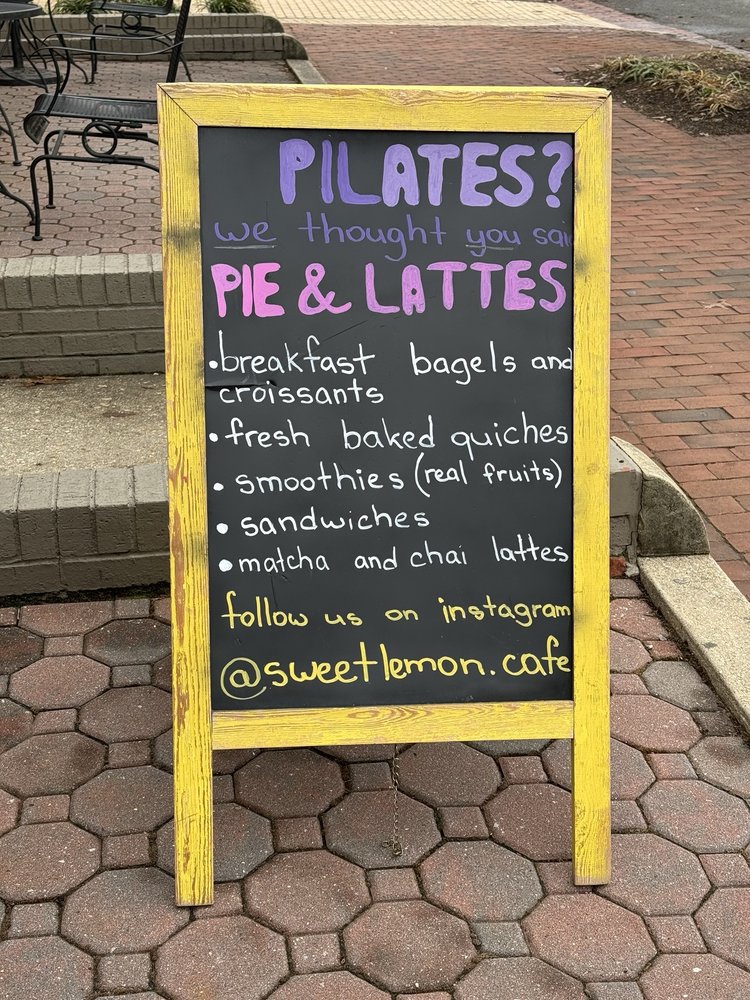 PILATES?
we thought you said
PIE & LATTES
• breakfast bagels and
croissants
• fresh baked quiches
• smoothies (real fruits)
• sandwiches
• matcha and chai lattes
follow us on instagram
@sweetlemon.cafe